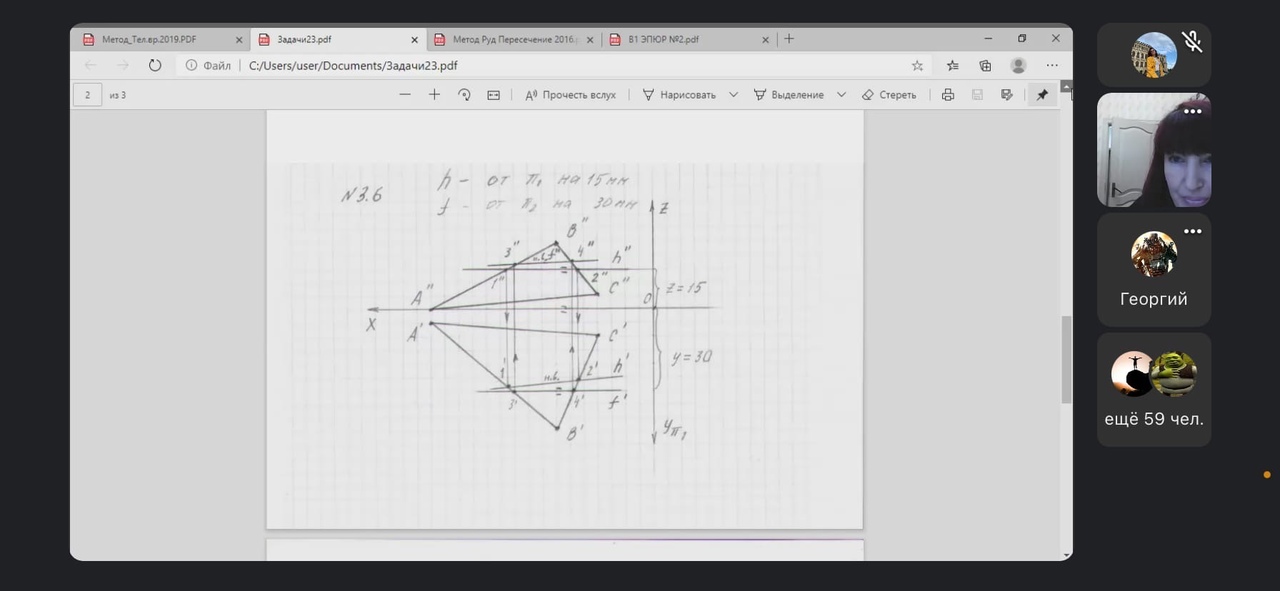 Метод_Тел.вр.2019.PDF
Задачи23.pdf
Метод Руд Пересечение 2016.p
В1 ЭПЮР №2.pdf
Файл
C:/Users/user/Documents/Задачи23.pdf
2
из 3
Прочесть вслух
Нарисовать
Выделение
Стереть
N3.6
h - от π₁ на 15мм
f - от π₂ на 30мм
Z
B"
3"
4"
h"
1"
2"
A"
C"
O
z=15
X
A'
C'
y=30
1'
н.в.
2'
h'
3'
4'
f'
B'
Yπ₁
Георгий
ещё 59 чел.